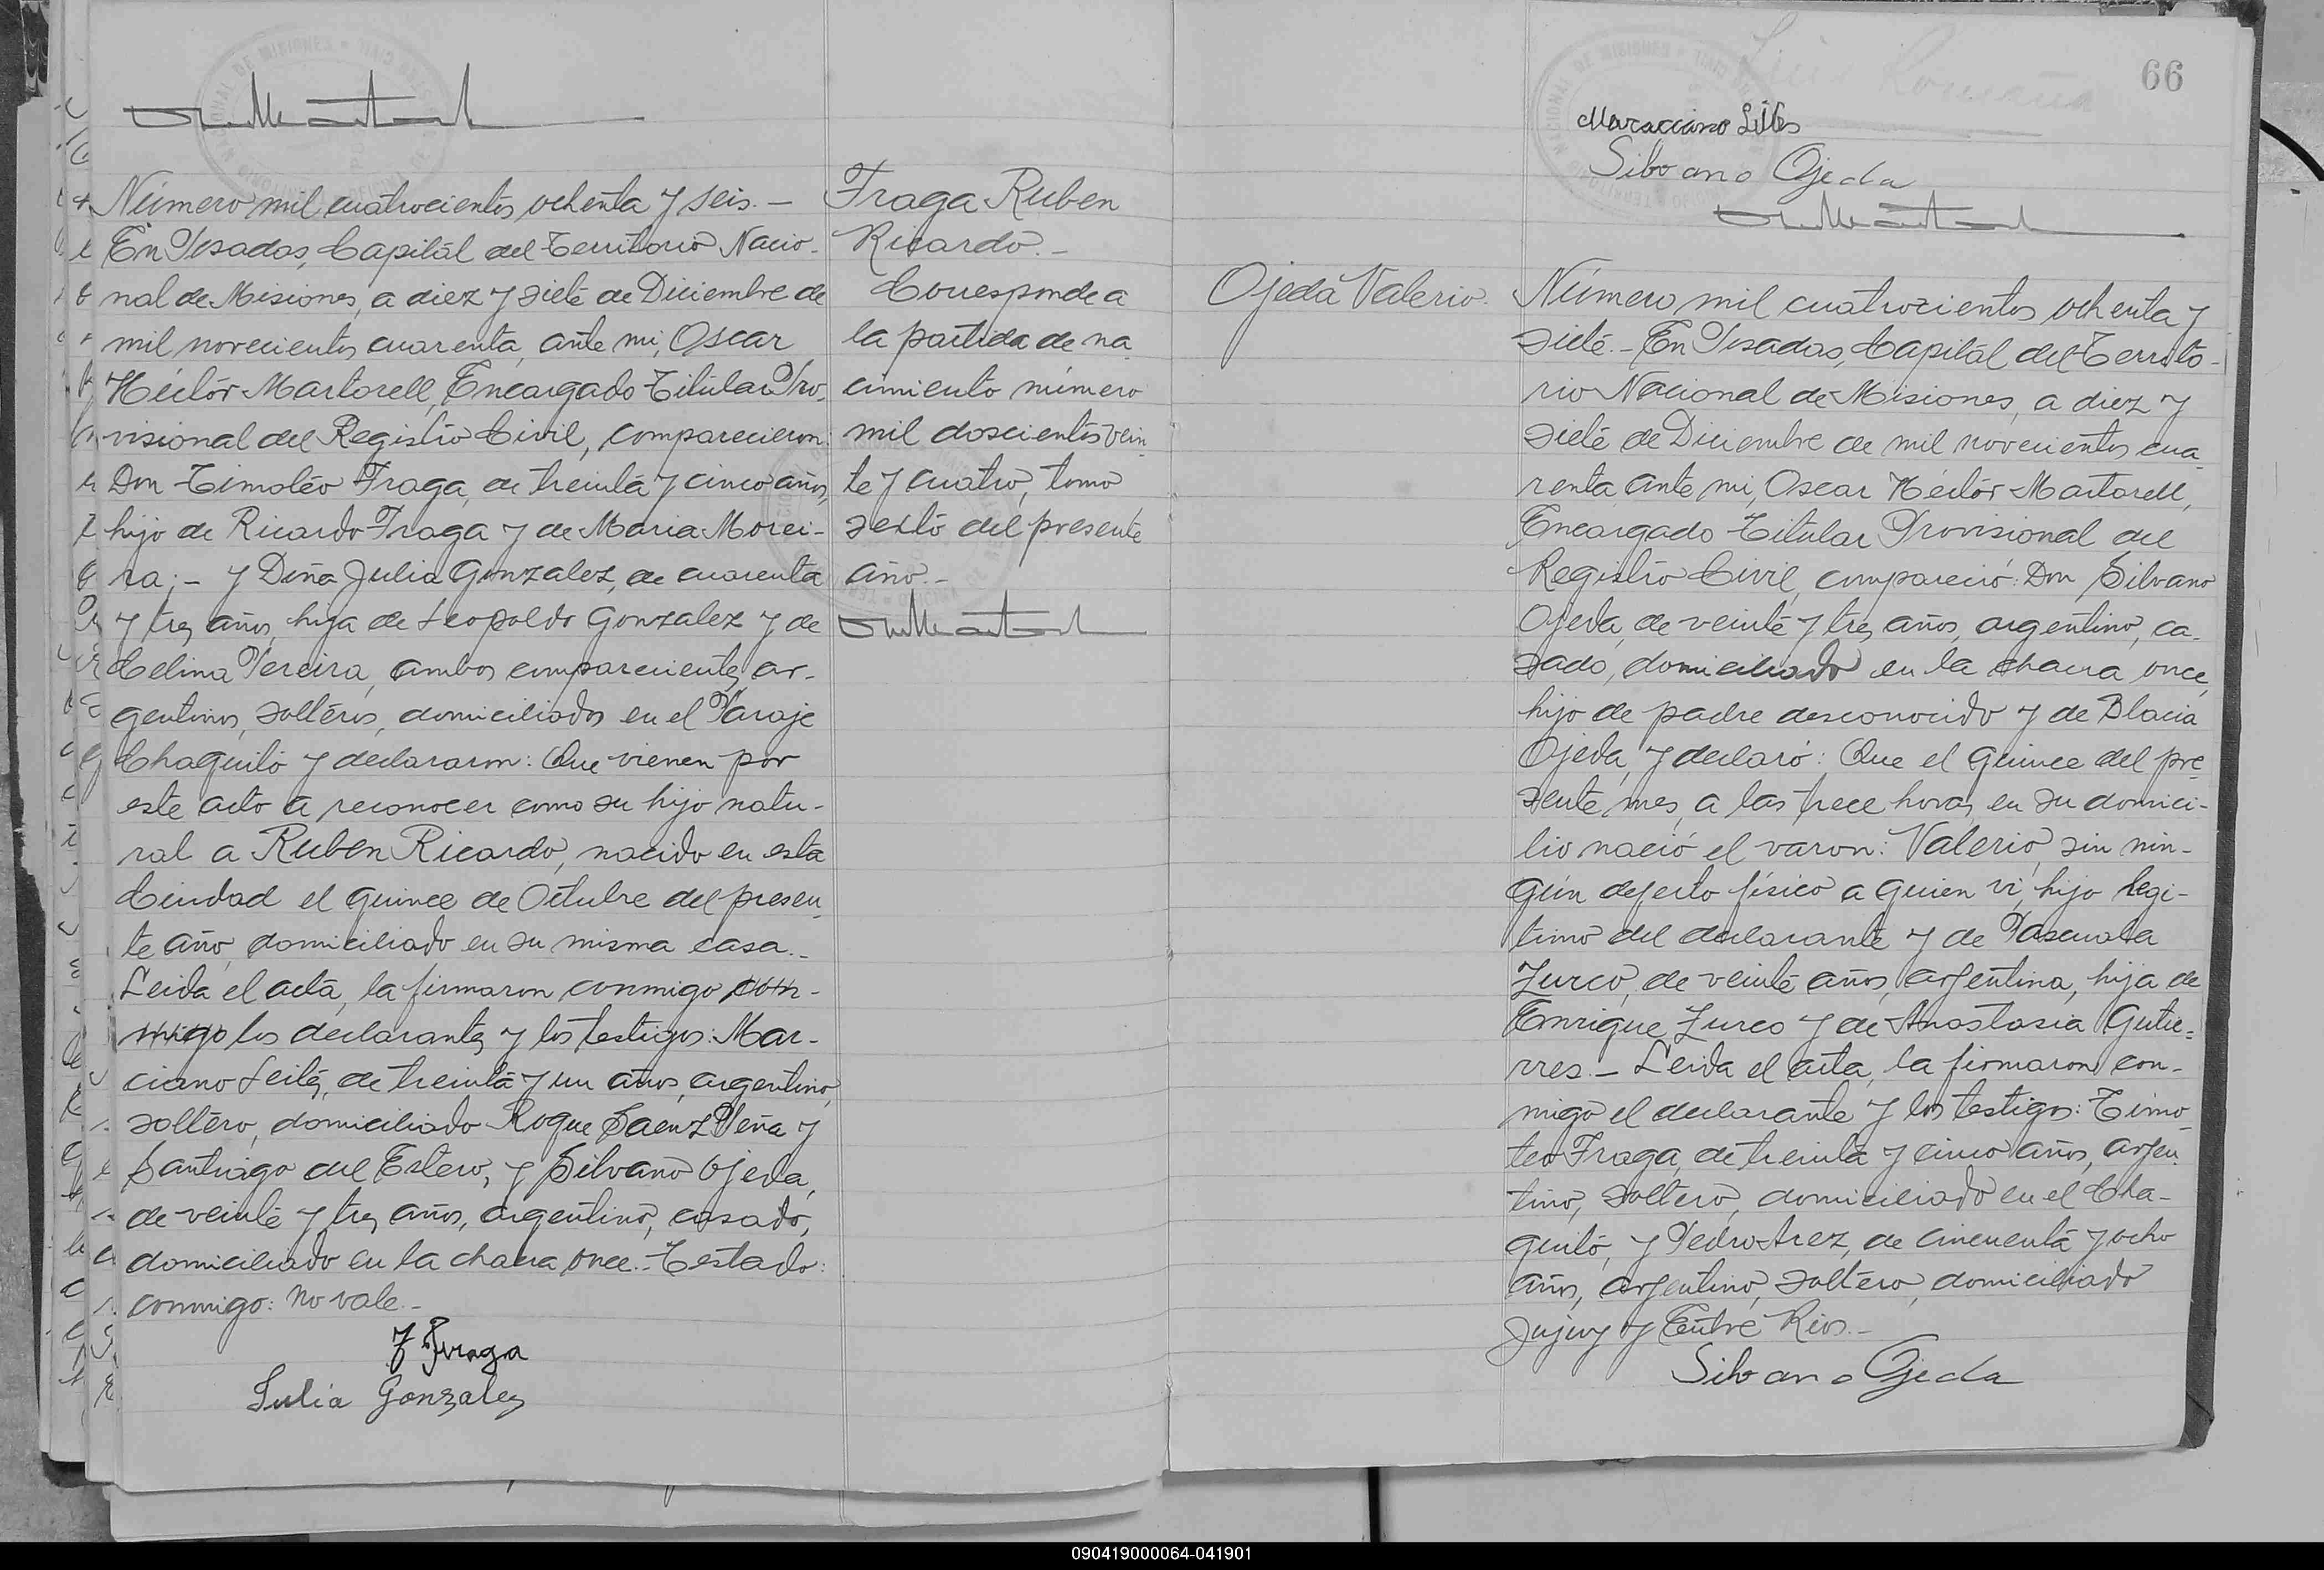 Número mil cuatrocientos ochenta y seis.—
En Posadas, Capitál del Territorio Nacio-
nal de Misiones, a diez y siete de Diciembre de
mil novecientos cuarenta, ante mi, Oscar
Héctor Martorell, Encargado Titular Pro-
visional del Registro Civil, comparecieron:
Don Timoteo Fraga, de treinta y cinco años,
hijo de Ricardo Fraga y de Maria Morei-
ra;— y Doña Julia Gonzalez, de cuarenta
y tres años, hija de Leopoldo Gonzalez y de
Celina Pereira, ambos comparecientes ar-
gentinos, solteros, domiciliados en el Paraje
Chaquito y declararon: Que vienen por
este acto a reconocer como su hijo natu-
ral a Ruben Ricardo, nacido en esta
Ciudad el quince de Octubre del presen-
te año, domiciliado en su misma casa.-
Leida el acta, la firmaron conmigo con-
migo los declarantes y los testigos: Mar-
ciano Leites, de treinta y un años, argentino,
soltero, domiciliado Roque Saenz Peña y
Santiago del Estero, y Silvano Ojeda,
de veinte y tres años, argentino, casado,
domiciliado en la chacra once.- Testado:
conmigo: No vale.-
T Fraga
Julia Gonzales
Fraga Ruben
Ricardo.-
Corresponde a
la partida de na
cimiento número
mil doscientos vein
te y cuatro, tomo
sexto del presente
año.-
66
Silvano Ojeda
Ojeda Valerio.
Número mil cuatrocientos ochenta y
siete.- En Posadas, Capitál del Territo-
rio Nacional de Misiones, a diez y
siete de Diciembre de mil novecientos cua-
renta, ante mi, Oscar Héctor Martorell,
Encargado Titular Provisional del
Registro Civil, compareció: Don Silvano
Ojeda, de veinte y tres años, argentino, ca-
sado, domiciliado en la chacra once,
hijo de padre desconocido y de Blacia
Ojeda, y declaró: Que el quince del pre-
sente mes, a las trece horas, en su domici-
lio nació el varon: Valerio, sin nin-
gún defecto físico a quien vi, hijo legi-
timo del declarante y de Pascuala
Zurco, de veinte años, argentina, hija de
Enrique Zurco y de Anastasia Gutie-
rres.— Leida el acta, la firmaron con-
migo el declarante y los testigos: Timo-
teo Fraga, de treinta y cinco años, argen-
tino, soltero, domiciliado en el Cha-
quito, y Pedro Arez, de cincuenta y ocho
años, argentino, soltero, domiciliado
Jujuy y Entre Rios.-
Silvano Ojeda
090419000064-041901